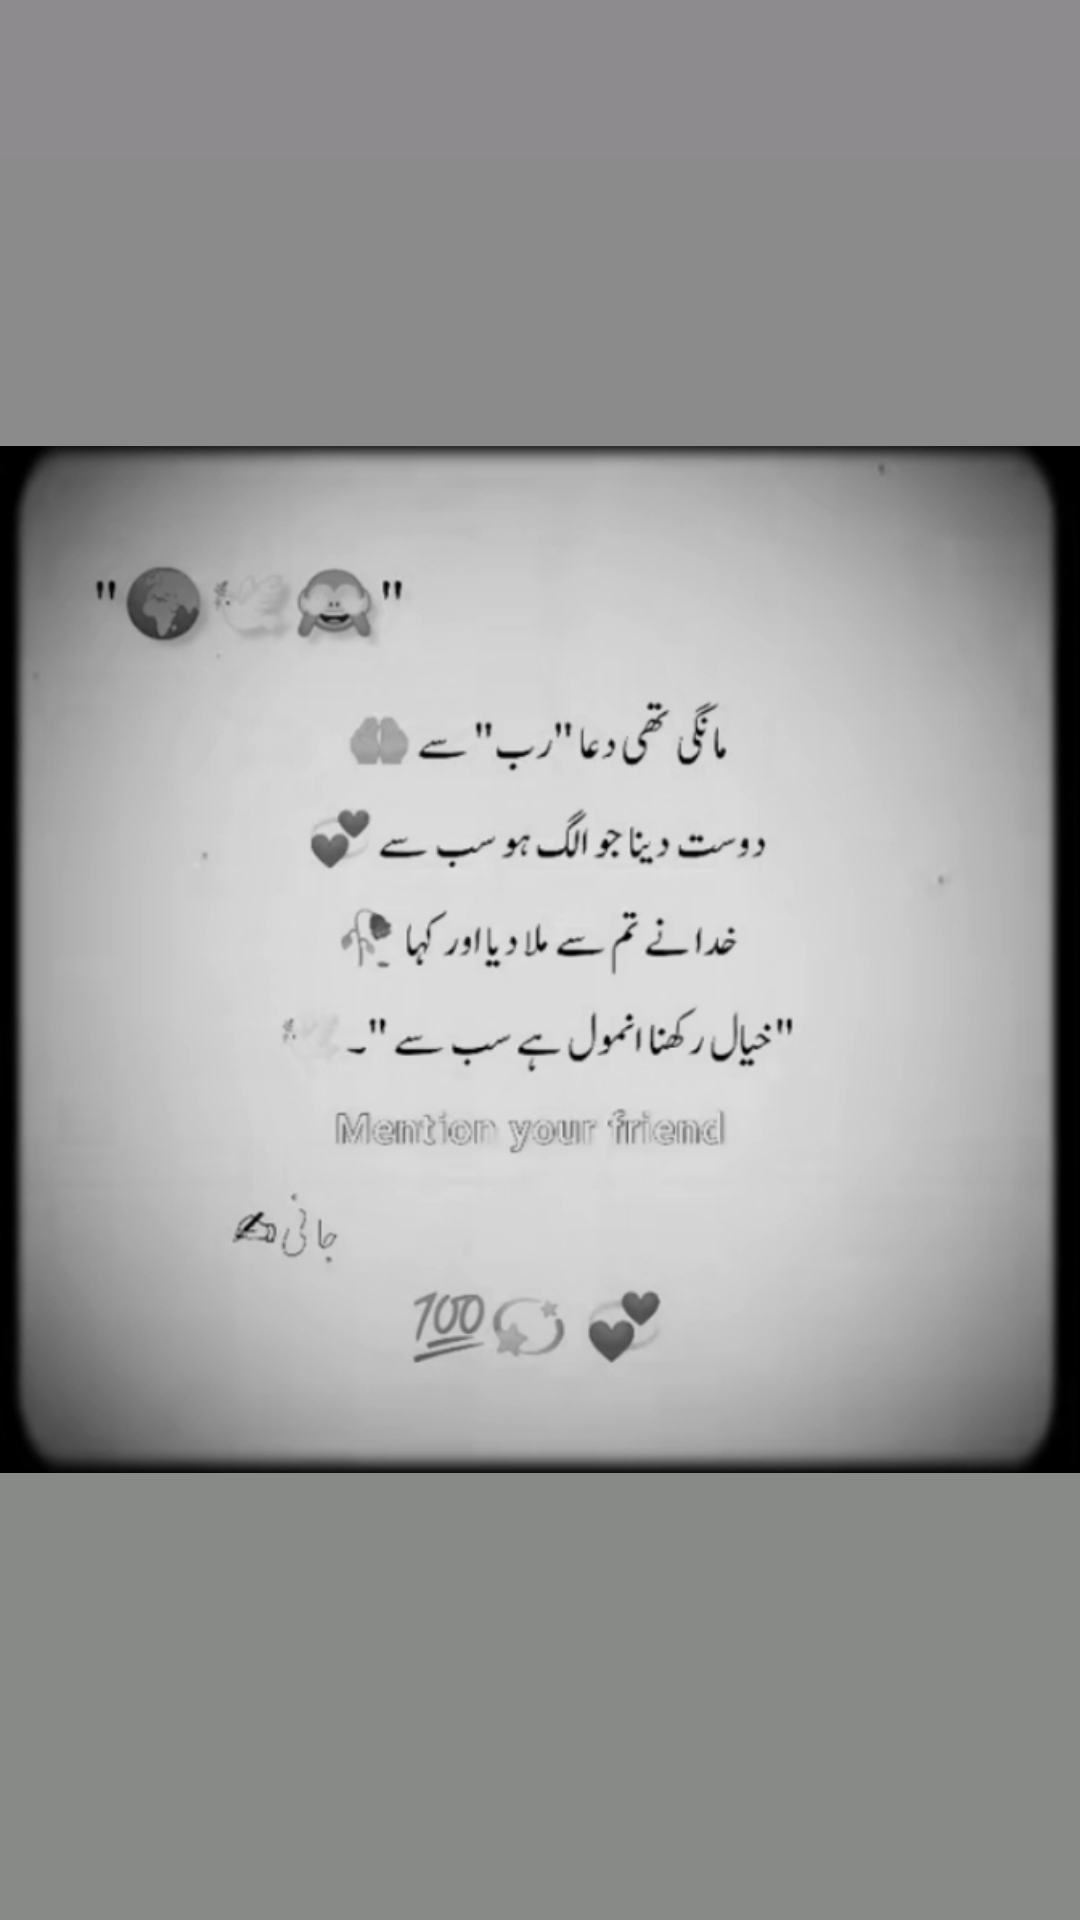 "🌍🕊️🙈"
مانگی تھی دعا "رب" سے 🤲
دوست دینا جو الگ ہو سب سے 💞
خدا نے تم سے ملا دیا اور کہا 🥀
"خیال رکھنا انمول ہے سب سے "۔ 🕊️
Mention your friend
جانی ✍
💯💫 💞